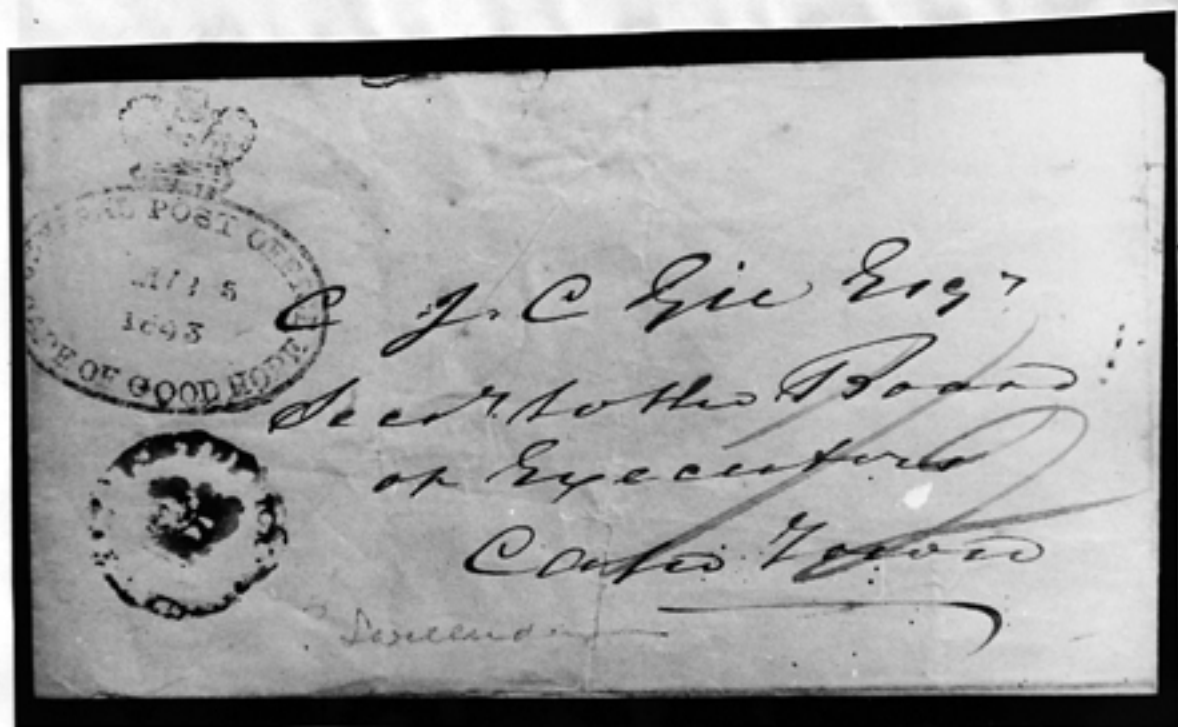 GENERAL POST OFFICE
5
1843
CAPE OF GOOD HOPE
C J. C Gie Esqr
Secry to the Board
of Executors
Cape Town